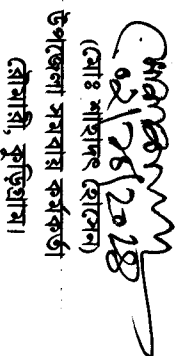 ০২/০৪/২০১৪
(মোঃ শাহাদৎ হোসেন)
উপজেলা সমবায় কর্মকর্তা
রৌমারী, কুড়িগ্রাম।